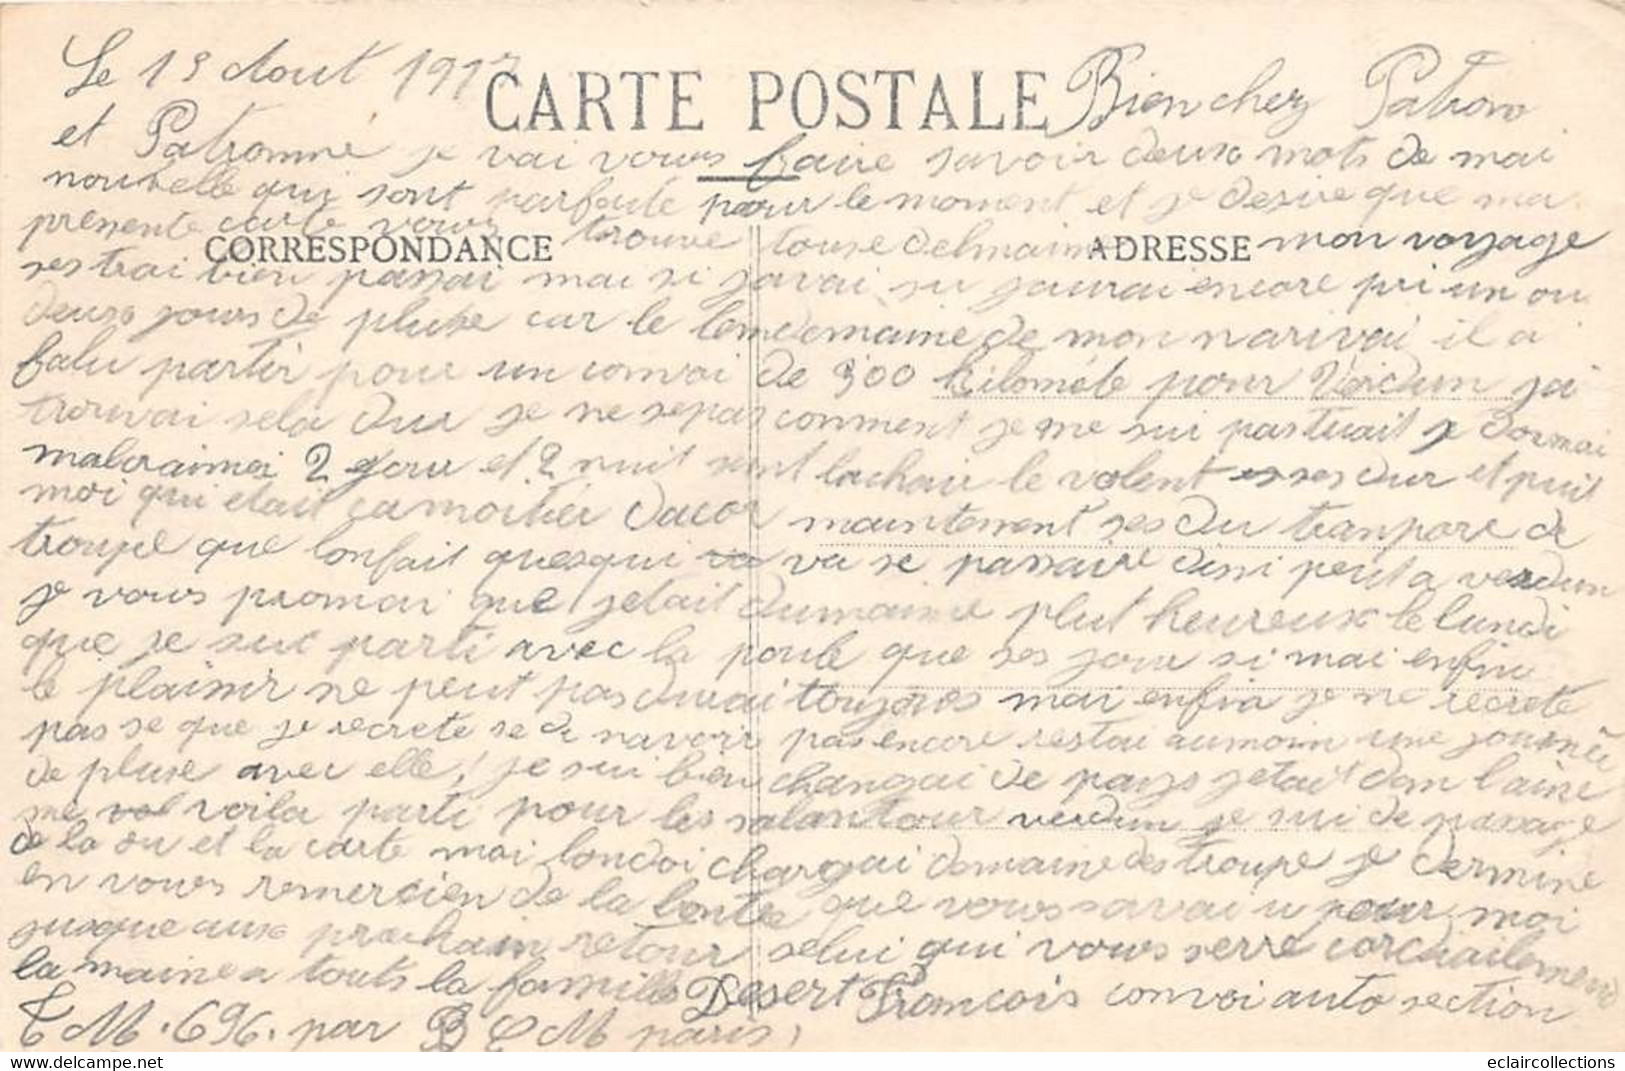 Le 13 Aout 1917 CARTE POSTALE Bien cher Patron
et Patronne je vai vous faire savoir deux mots de mai
nouvelle qui sont parfaite pour le moment et je desire que ma
presente carte vous trouve touse delmaime mon voyage
CORRESPONDANCE ADRESSE
ses trai bien passai mai si javai su jaurai encore pri un ou
deux jours de pluse car le lendemaine de mon narivai il a
falu partir pour un convoi de 300 kilomete pour Verdun jai
trouvai sela dur je ne se pas comment je me sui pas tuait je dormai
malgraimoi 2 jour et 2 nuit sent lachair le volent ses dur et puit
moi qui etait ca moitier dacor maintenent ses du tranpore de
troupe que lon fait quesqui va se passaire dissi peut a verdun
je vous promai que jetait dumaime plut heureux le lundi
que je suit parti avec la poule que ses jour si mai enfin
le plaisir ne peut pas durai toujours mai enfin je ne recrete
pas se que je recrete se de navoir pas encore restai aumoin une journée
de pluse avec elle! je sui bien changai de pays jetait dan laine
me voila parti pour les salantour verdun je sui de passage
de la ou et la carte moi londoi chargai domaine des troupe je dermine
en vous remercien de la bontée que vous savai u pour moi
jusque aux prochain retour selui qui vous serre corchailemend
la maine a touts la famille Desert Francois convoi auto section
T M. 696. par B C M paris,
eclaircollections